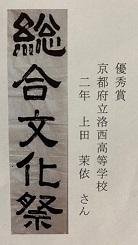 優秀賞
京都府立洛西高等学校
二年 上田 茉依 さん
総合文化祭